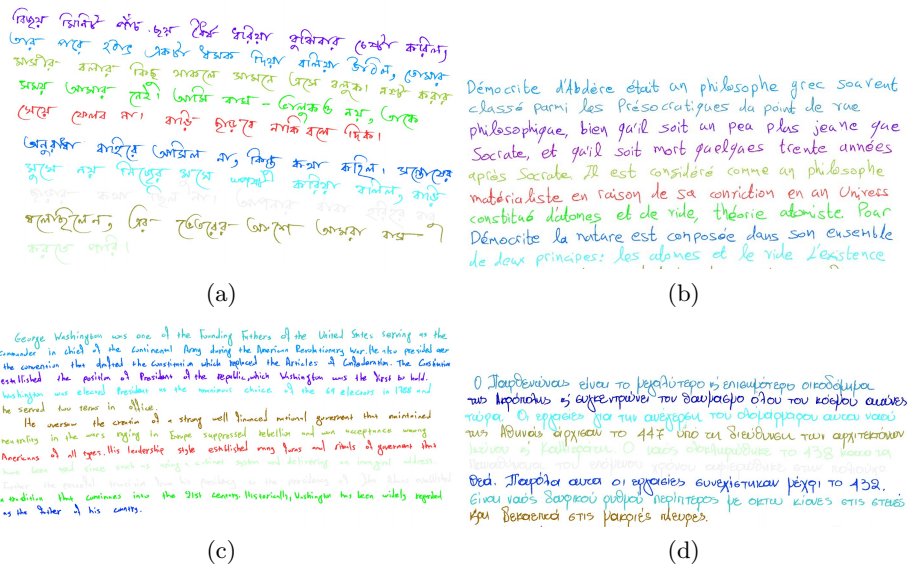 মিনিট পাঁচ ছয় ধৈর্য ধরিয়া বুঝিবার চেষ্টা করিল,
তার পরে হঠাৎ একটা ধমক দিয়া বলিয়া উঠিল, তোমার
মাসীর বলার কিছু থাকলে সামনে এসে বলুক। নষ্ট করার
সময় আমার নেই। আমি বাঘ - ভালুকও নয়, তাকে
খেয়ে ফেলব না। বাড়ি ছাড়বে নাকি বলে দিক।
অনুরাধা বাহিরে আসিল না, কিন্তু কথা কহিল। সন্তোষের
মুখে নয় নিজের মুখে করিয়া বলিল, বাড়ি
ছাড়ার কথা ছিল না। আপনার বাবা হরিহর বাবু
বলেছিলেন, এর ভেতরের অংশে আমরা বাস
করতে পারি।
Démocrite d'Abdère était un philosophe grec souvent
classé parmi les Présocratiques du point de vue
philosophique, bien qu'il soit un peu plus jeune que
Socrate, et qu'il soit mort quelques trente années
après Socrate. Il est considéré comme un philosophe
matérialiste en raison de sa conviction en un Univers
constitué d'atomes et de vide, théorie atomiste. Pour
Démocrite la nature est composée dans son ensemble
de deux principes: les atomes et le vide L'existence
(a)
(b)
George Washington was one of the Founding Fathers of the United States serving as the
commander in chief of the Continental Army during the American Revolutionary War. He also presided over
the convention that drafted the Constitution which replaced the Articles of Confederation. The Constitution
established the position of President of the republic, which Washington was the first to hold.
Washington was elected President as the unanimous choice of the 69 electors in 1788 and
he served two terms in office.
He oversaw the creation of a strong well financed national government that maintained
neutrality in the wars raging in Europe suppressed rebellion and won acceptance among
Americans of all types. His leadership style established many forms and rituals of government that
have been used since such as using a cabinet system and delivering an inaugural address
a tradition that continues into the 21st century. Historically, Washington has been widely regarded
as the father of his country.
Ο Παρθενώνας είναι το μεγαλύτερο κ επισημότερο οικοδόμημα
της Ακρόπολης κ συγκεντρώνει τον θαυμασμό όλου του κόσμου αιώνες
τώρα. Οι εργασίες για την ανέγερση του ολομάρμαρου αυτού ναού
της Αθηνάς άρχισαν το 447 υπό τη διεύθυνση των αρχιτεκτόνων
Ικτίνου κ Καλλικράτη. Ο ναός ολοκληρώθηκε το 438
θεά. Παρόλα αυτά οι εργασίες συνεχίστηκαν μέχρι το 432.
Είναι ναός δωρικού ρυθμού περίπτερος με οκτώ κίονες στις στενές
και δεκαεπτά στις μακριές πλευρές.
(c)
(d)